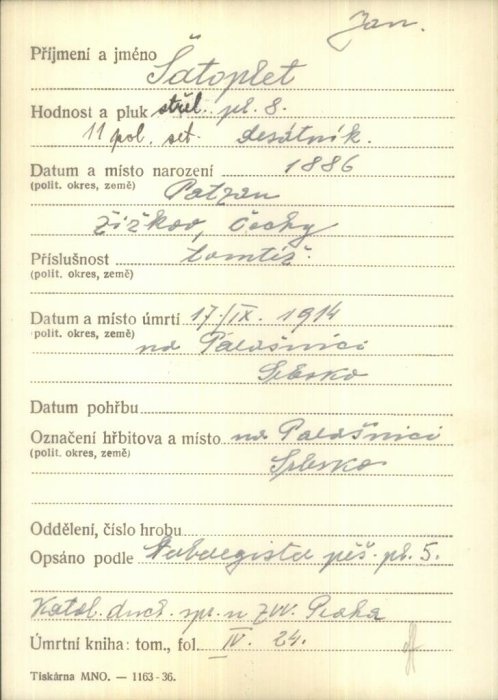 Jan.
Příjmení a jméno Šatoplet
Hodnost a pluk střel. pl. 8.
11 pol. set. desátník.
Datum a místo narození 1886
(polit. okres, země) Patzan
Žižkov, Čechy
Příslušnost tamtéž.
(polit. okres, země)
Datum a místo úmrtí 17./IX. 1914
(polit. okres, země) na Palašnici
Srbsko
Datum pohřbu
Označení hřbitova a místo na Palašnici
(polit. okres, země) Srbsko
Oddělení, číslo hrobu
Opsáno podle pěš. pl. 5.
Katol. duch. spr. u ZVV. Praha
Úmrtní kniha: tom., fol. IV. 24.
Tiskárna MNO. — 1163-36.